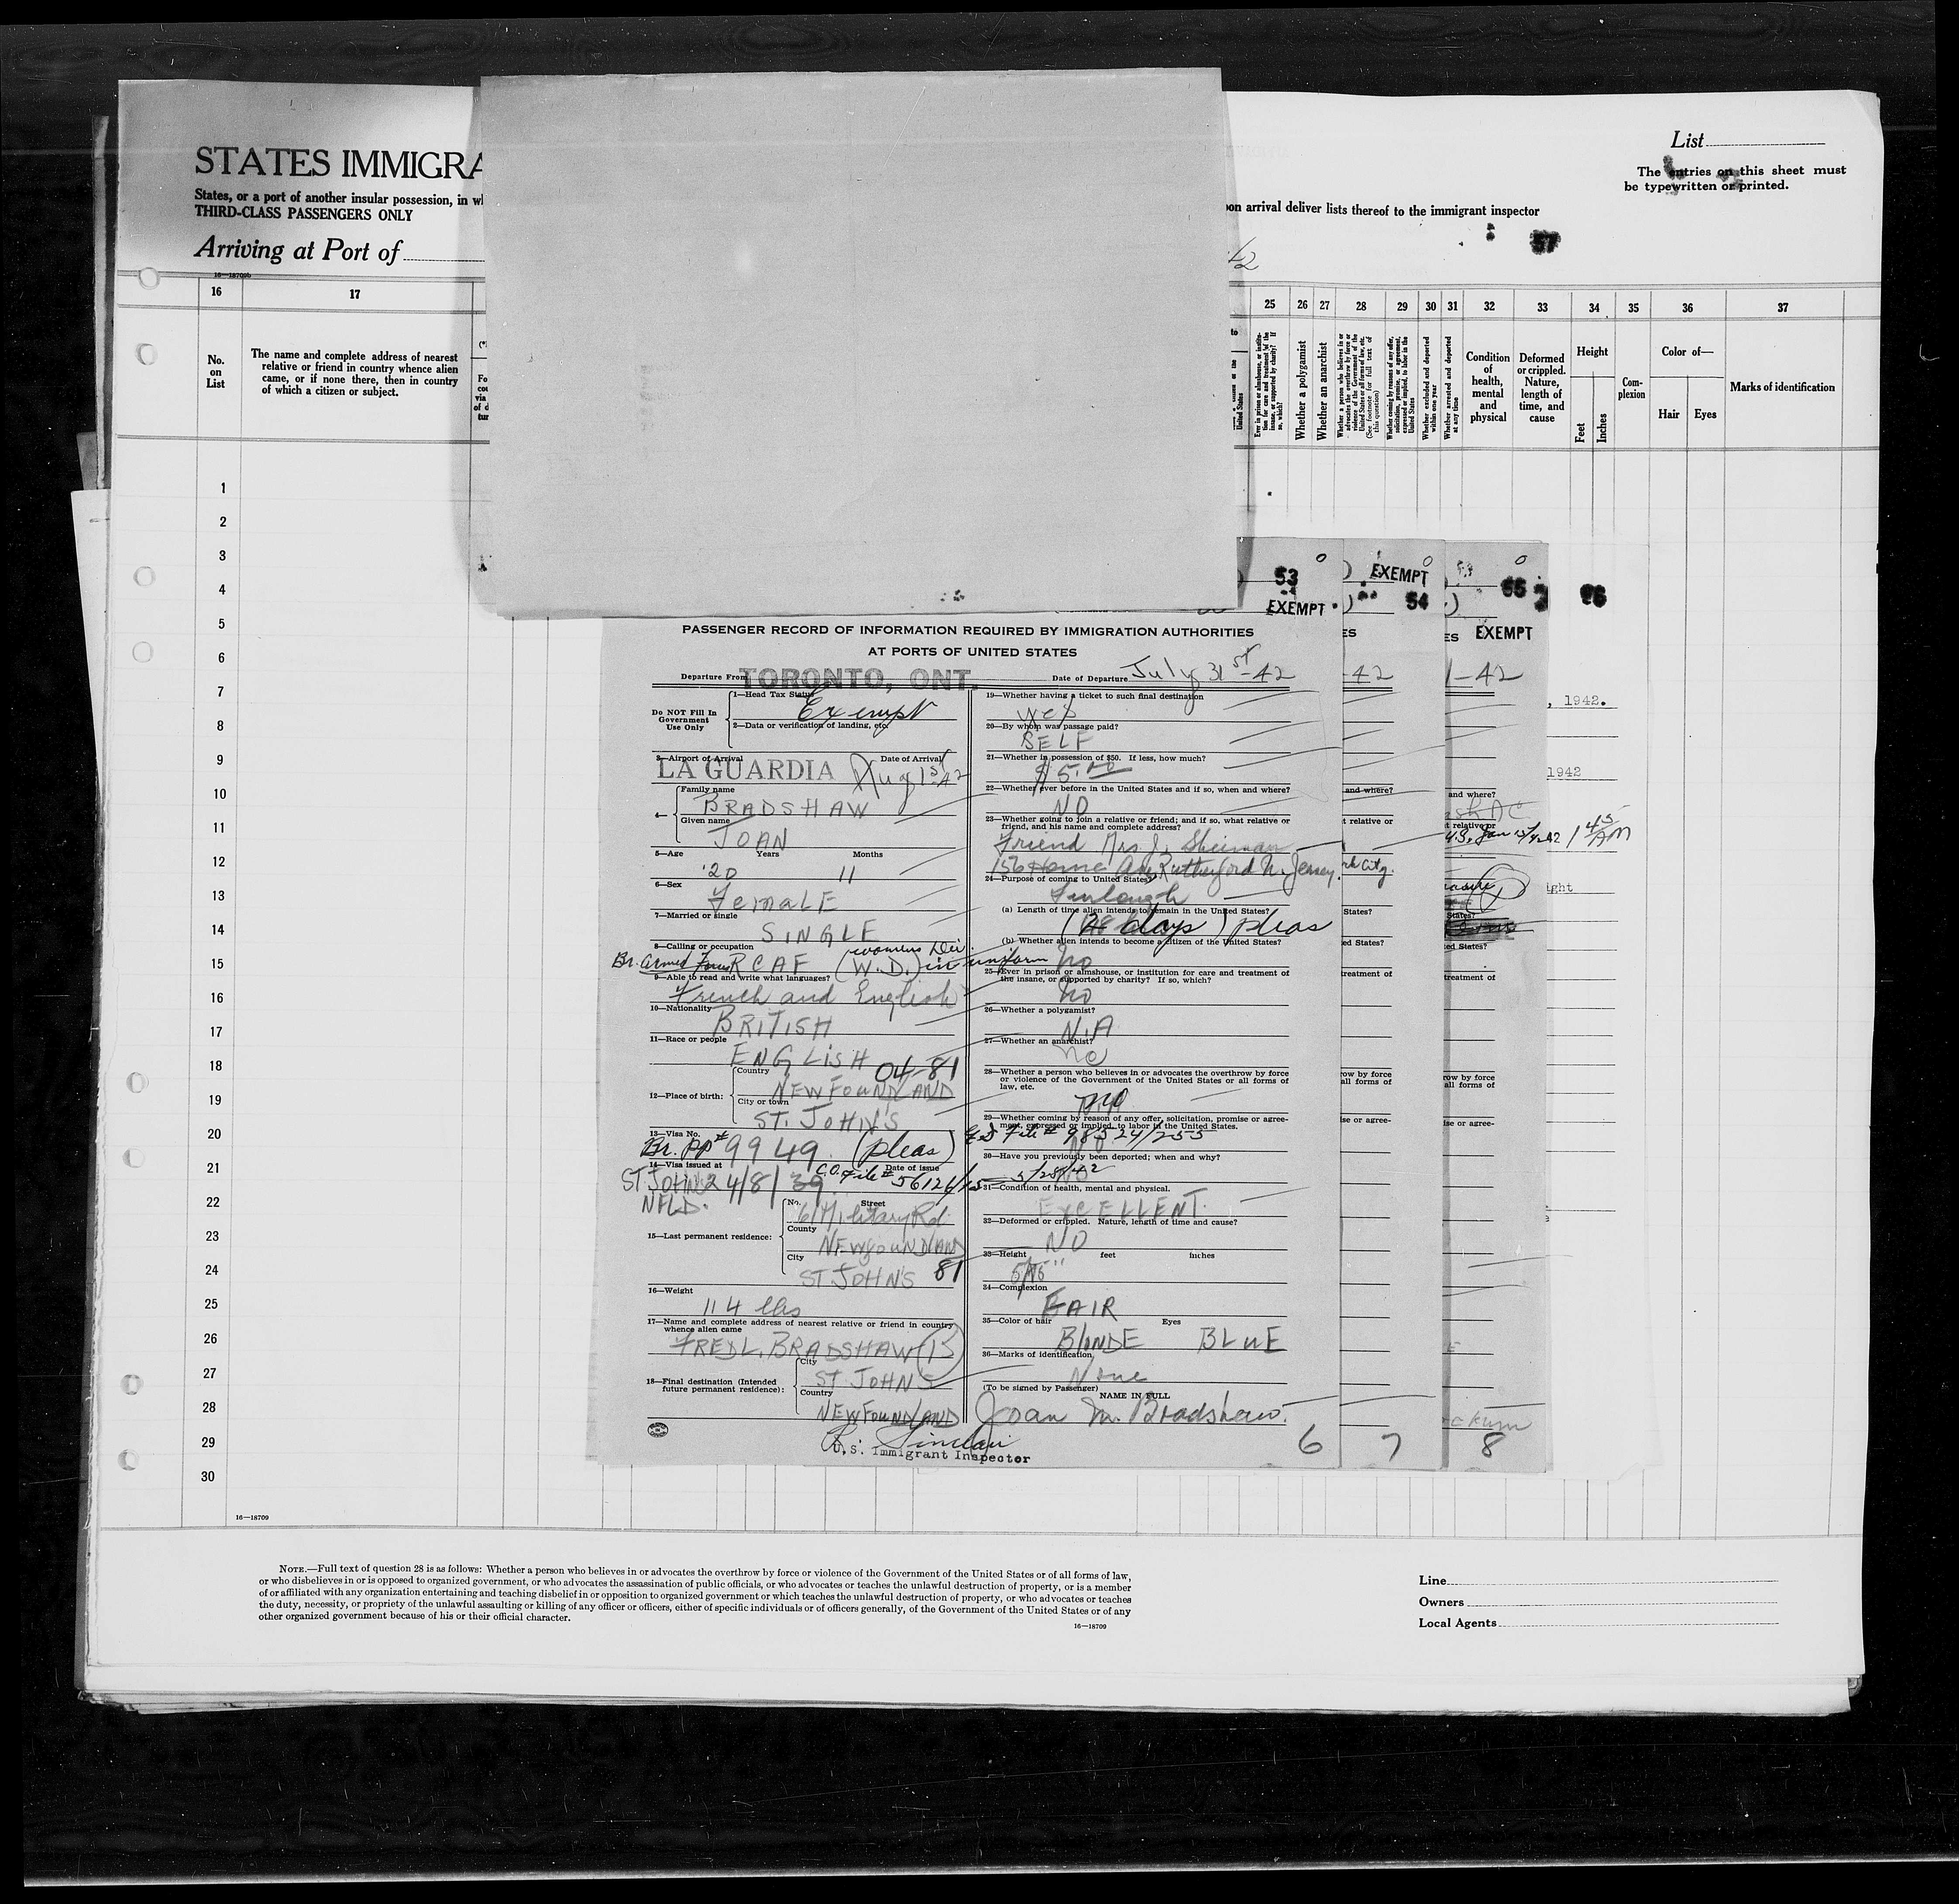 STATES IMMIGRA
States, or a port of another insular possession, in wh
THIRD-CLASS PASSENGERS ONLY
Arriving at Port of
16—18709b
List
The entries on this sheet must
be typewritten or printed.
on arrival deliver lists thereof to the immigrant inspector
57
42
16 17 25 26 27 28 29 30 31 32 33 34 35 36 37
No. on List
The name and complete address of nearest
relative or friend in country whence alien
came, or if none there, then in country
of which a citizen or subject.
Whether a polygamist
Whether an anarchist
Whether excluded and deported within one year
Whether arrested and deported at any time
Condition of health, mental and physical
Deformed or crippled. Nature, length of time, and cause
Height
Feet
Inches
Complexion
Color of—
Hair
Eyes
Marks of identification
1
2
3
4
5
6
7
8
9
10
11
12
13
14
15
16
17
18
19
20
21
22
23
24
25
26
27
28
29
30
53
EXEMPT
EXEMPT
54
EXEMPT
PASSENGER RECORD OF INFORMATION REQUIRED BY IMMIGRATION AUTHORITIES
AT PORTS OF UNITED STATES
Departure From TORONTO, ONT. Date of Departure July 31st-42
Do NOT Fill In
Government
Use Only
1—Head Tax Status
Exempt
2—Data or verification of landing, etc.
3—Airport of Arrival Date of Arrival
LA GUARDIA Aug 1st 42
4— Family name
BRADSHAW
Given name
JOAN
5—Age Years Months
20 11
6—Sex
Female
7—Married or single
SINGLE
8—Calling or occupation
Br. Armed Forces RCAF (W.D.) in uniform
womens Div.
9—Able to read and write what languages?
French and English
10—Nationality
BRITISH
11—Race or people
ENGLISH 04-81
12—Place of birth: Country
NEWFOUNDLAND
City or town
ST. JOHN'S
13—Visa No.
Br. PP # 9949 (pleas)
14—Visa issued at Date of issue
ST JOHNS 24/8/39 C.O. File # 56126/
NFLD.
15—Last permanent residence: No. Street
61 Military Rd.
County
NEWFOUNDLAND
City
ST JOHN'S 81
16—Weight
114 lbs
17—Name and complete address of nearest relative or friend in country
whence alien came
FRED L. BRADSHAW
18—Final destination (Intended
future permanent residence): City
ST JOHNS
Country
NEWFOUNDLAND
Sinclair
U.S. Immigrant Inspector
19—Whether having a ticket to such final destination
yes
20—By whom was passage paid?
SELF
21—Whether in possession of $50. If less, how much?
22—Whether ever before in the United States and if so, when and where?
NO
23—Whether going to join a relative or friend; and if so, what relative or
friend, and his name and complete address?
Friend Mrs J. Sheiman
156 Home Ave, Rutherford N. Jersey.
24—Purpose of coming to United States?
Furlough
(a) Length of time alien intends to remain in the United States?
days) pleas
(b) Whether alien intends to become a citizen of the United States?
no
25—Ever in prison or almshouse, or institution for care and treatment of
the insane, or supported by charity? If so, which?
no
26—Whether a polygamist?
N.A
27—Whether an anarchist?
no
28—Whether a person who believes in or advocates the overthrow by force
or violence of the Government of the United States or all forms of
law, etc.
no
29—Whether coming by reason of any offer, solicitation, promise or agree-
ment, expressed or implied, to labor in the United States.
File # 98524/255
NO
30—Have you previously been deported; when and why?
5/28/42
NO
31—Condition of health, mental and physical.
EXCELLENT.
32—Deformed or crippled. Nature, length of time and cause?
NO
33—Height feet inches
34—Complexion
FAIR
35—Color of hair Eyes
BLONDE BLUE
36—Marks of identification
None
(To be signed by Passenger)
NAME IN FULL
Joan M. Bradshaw.
6 7 8
, 1942.
1942
16—18709
NOTE.—Full text of question 28 is as follows: Whether a person who believes in or advocates the overthrow by force or violence of the Government of the United States or of all forms of law,
or who disbelieves in or is opposed to organized government, or who advocates the assassination of public officials, or who advocates or teaches the unlawful destruction of property, or is a member
of or affiliated with any organization entertaining and teaching disbelief in or opposition to organized government or which teaches the unlawful destruction of property, or who advocates or teaches
the duty, necessity, or propriety of the unlawful assaulting or killing of any officer or officers, either of specific individuals or of officers generally, of the Government of the United States or of any
other organized government because of his or their official character.
16—18709
Line
Owners
Local Agents